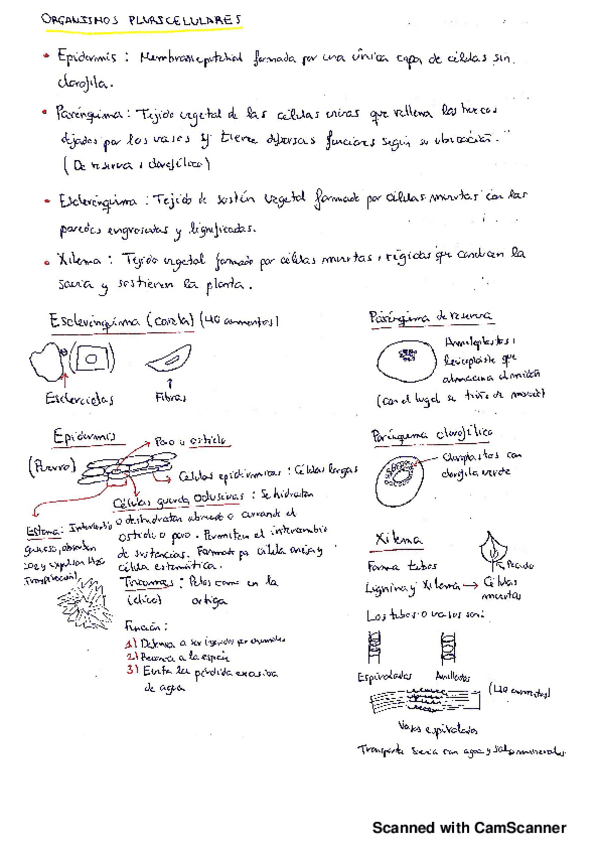 ORGANISMOS PLURICELULARES
• Epidermis : Membrana epitelial formada por una única capa de células sin
clorofila.
• Parénquima : Tejido vegetal de las células vivas que rellena los huecos
dejados por los vasos y tiene diversas funciones según su ubicación.
(De reserva o clorofílico)
• Esclerénquima : Tejido de sostén vegetal formado por células muertas con las
paredes engrosadas y lignificadas.
• Xilema : Tejido vegetal formado por células muertas, rígidas que conducen la
savia y sostienen la planta.
Esclerénquima (40 aumentos)
Esclereidas
Fibras
Parénquima de reserva
Amiloplastos:
leucoplasto que
almacena almidón
(con el lugol se
Epidermis
Poro u ostiolo
(Puerro)
Células epidérmicas : Células largas
Células guarda oclusivas : Se hidratan
o deshidratan abriendo o cerrando el
ostiolo o poro. Permiten el intercambio
de sustancias.
célula estomática.
Estoma : Intercambio
gaseoso, absorben
CO2 y expulsan H2O
Transpiración
Tricomas : Pelos como en la
(olivo) ortiga
Función :
1) Defensa a ser ingeridos por animales
2)
3) Evita la pérdida excesiva
de agua
Parénquima clorofílico
Cloroplastos con
clorofila verde
Xilema
Forma tubos
Lignina y Xilema → Células
muertas
Los tubos o vasos son:
Espiralados
Anillados
(40 aumentos)
Vasos espiralados
Transporta savia con agua y sales minerales
Scanned with CamScanner